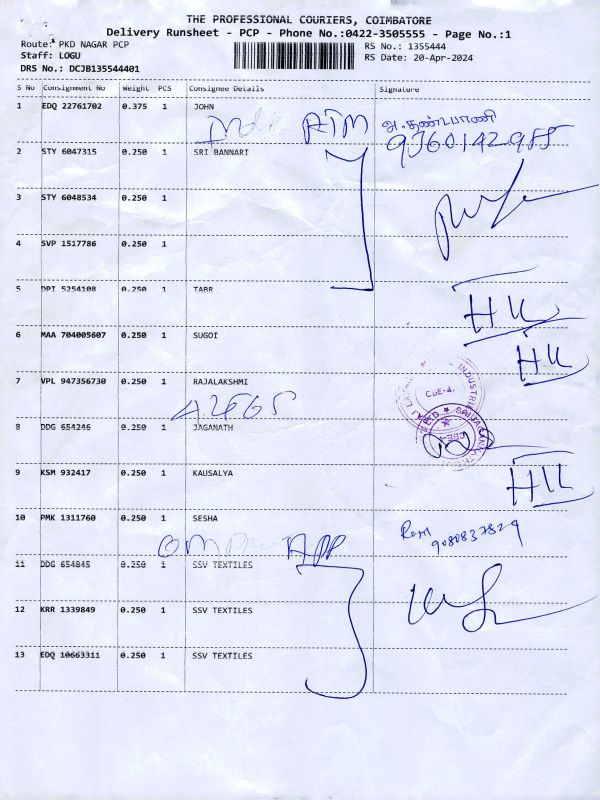 THE PROFESSIONAL COURIERS, COIMBATORE
Delivery Runsheet - PCP - Phone No.:0422-3505555 - Page No.:1
Route: PKD NAGAR PCP
RS No.: 1355444
Staff: LOGU
RS Date: 20-Apr-2024
DRS No.: DCJB135544401
S No Consignment No Weight PCS Consignee Details Signature
1 EDQ 22761702 0.375 1 JOHN
RTM
2 STY 6047315 0.250 1 SRI BANNARI
3 STY 6048534 0.250 1
4 SVP 1517786 0.250 1
5 DPI 5254108 0.250 1 TABR
HK
6 MAA 704005607 0.250 1 SUGOI
HK
7 VPL 947356730 0.250 1 RAJALAKSHMI
CBE-4.
8 DDG 654246 0.250 1 JAGANATH
9 KSM 932417 0.250 1 KAUSALYA
HK
10 PMK 1311760 0.250 1 SESHA
9080837829
APP
11 DDG 654845 0.250 1 SSV TEXTILES
12 KRR 1339849 0.250 1 SSV TEXTILES
13 EDQ 10663311 0.250 1 SSV TEXTILES